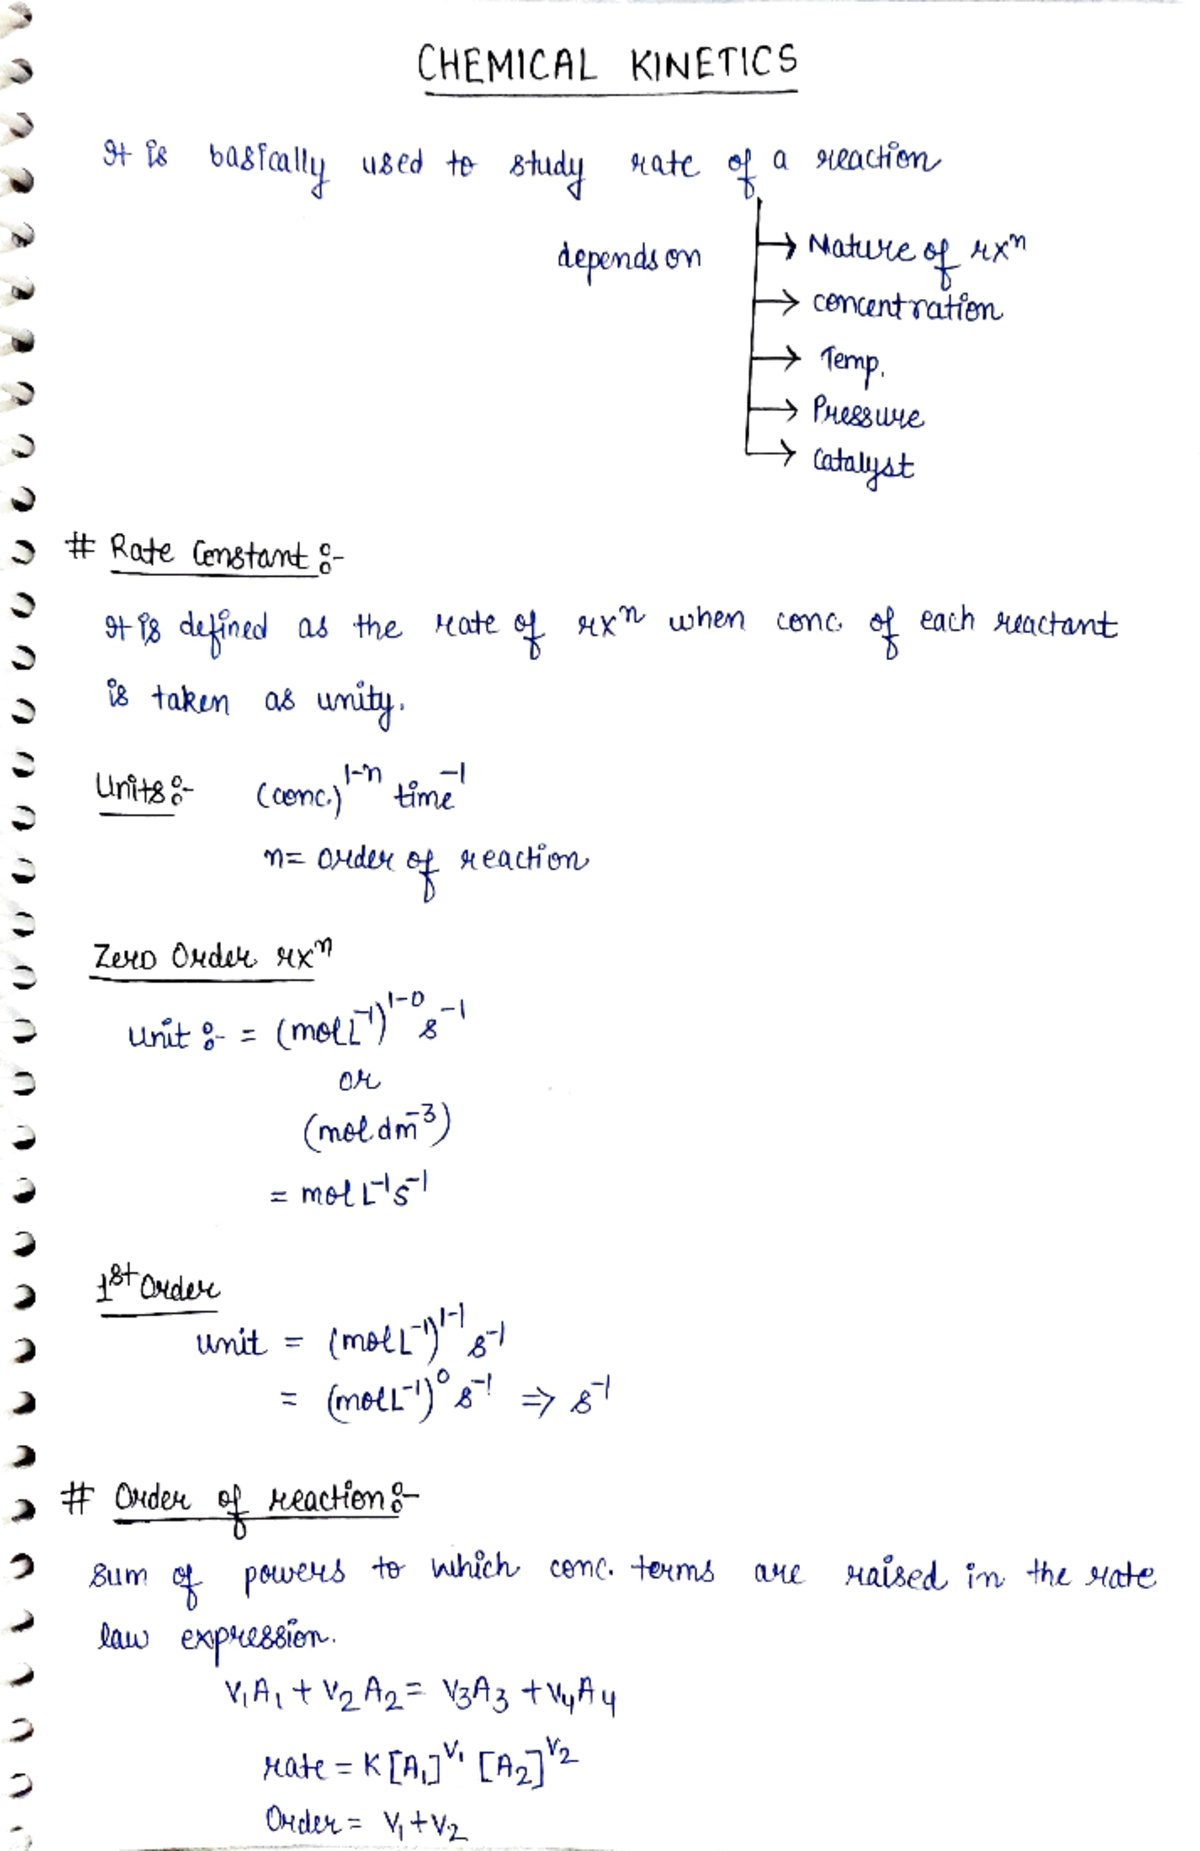 CHEMICAL KINETICS
It is basically used to study rate of a reaction
depends on
→ Nature of rxⁿ
→ concentration
→ Temp.
→ Pressure
→ Catalyst
# Rate Constant :-
It is defined as the rate of rxⁿ when conc. of each reactant
is taken as unity.
Units :- (conc.)¹⁻ⁿ time⁻¹
n = order of reaction
Zero Order rxⁿ
unit :- = (mol L⁻¹)¹⁻⁰ s⁻¹
or
(mol dm⁻³)
= mol L⁻¹ s⁻¹
1st Order
unit = (mol L⁻¹)¹⁻¹ s⁻¹
= (mol L⁻¹)⁰ s⁻¹ ⇒ s⁻¹
# Order of reaction :-
Sum of powers to which conc. terms are raised in the rate
law expression.
V₁A₁ + V₂A₂ = V₃A₃ + V₄A₄
rate = K [A₁]^V₁ [A₂]^V₂
Order = V₁ + V₂